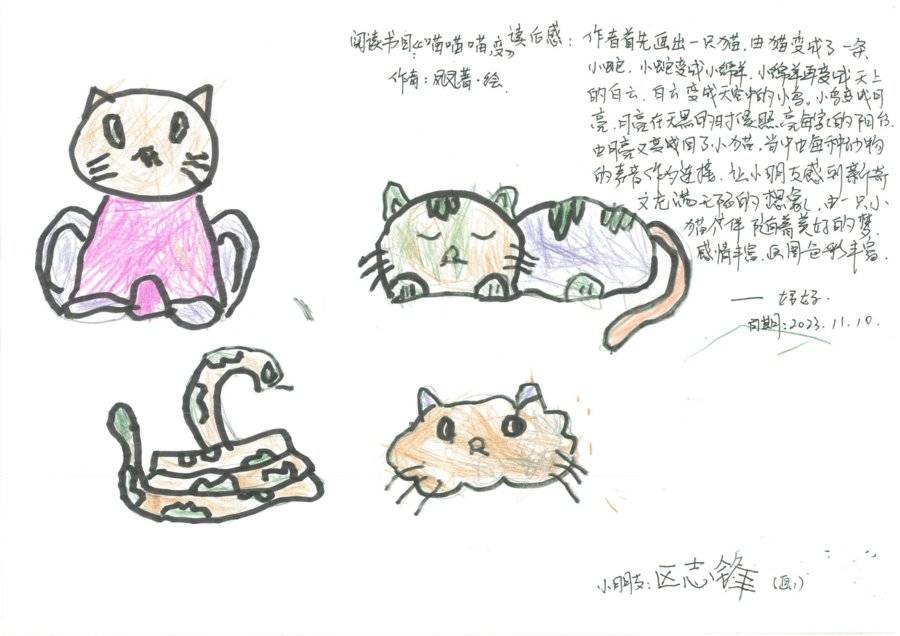 阅读书目:《喵喵喵,变》读后感:
作者:凤凤著·绘.
作者首先画出一只猫.由猫变成了一条
小蛇.小蛇变成小绵羊.小绵羊再变成天上
的白云.白云变成天空中的小鸟。小鸟变成月
亮.月亮在天黑的时候照亮每家的阳台.
由月亮又变成回了小猫.当中由每种动物
的声音作为连接.让小朋友感到新奇
又充满无限的想象.由一只小
猫伴随着美好的梦.
感情丰富.画图色彩丰富.
—— 好好.
日期:2023.11.10.
小朋友:区志锋 (画)